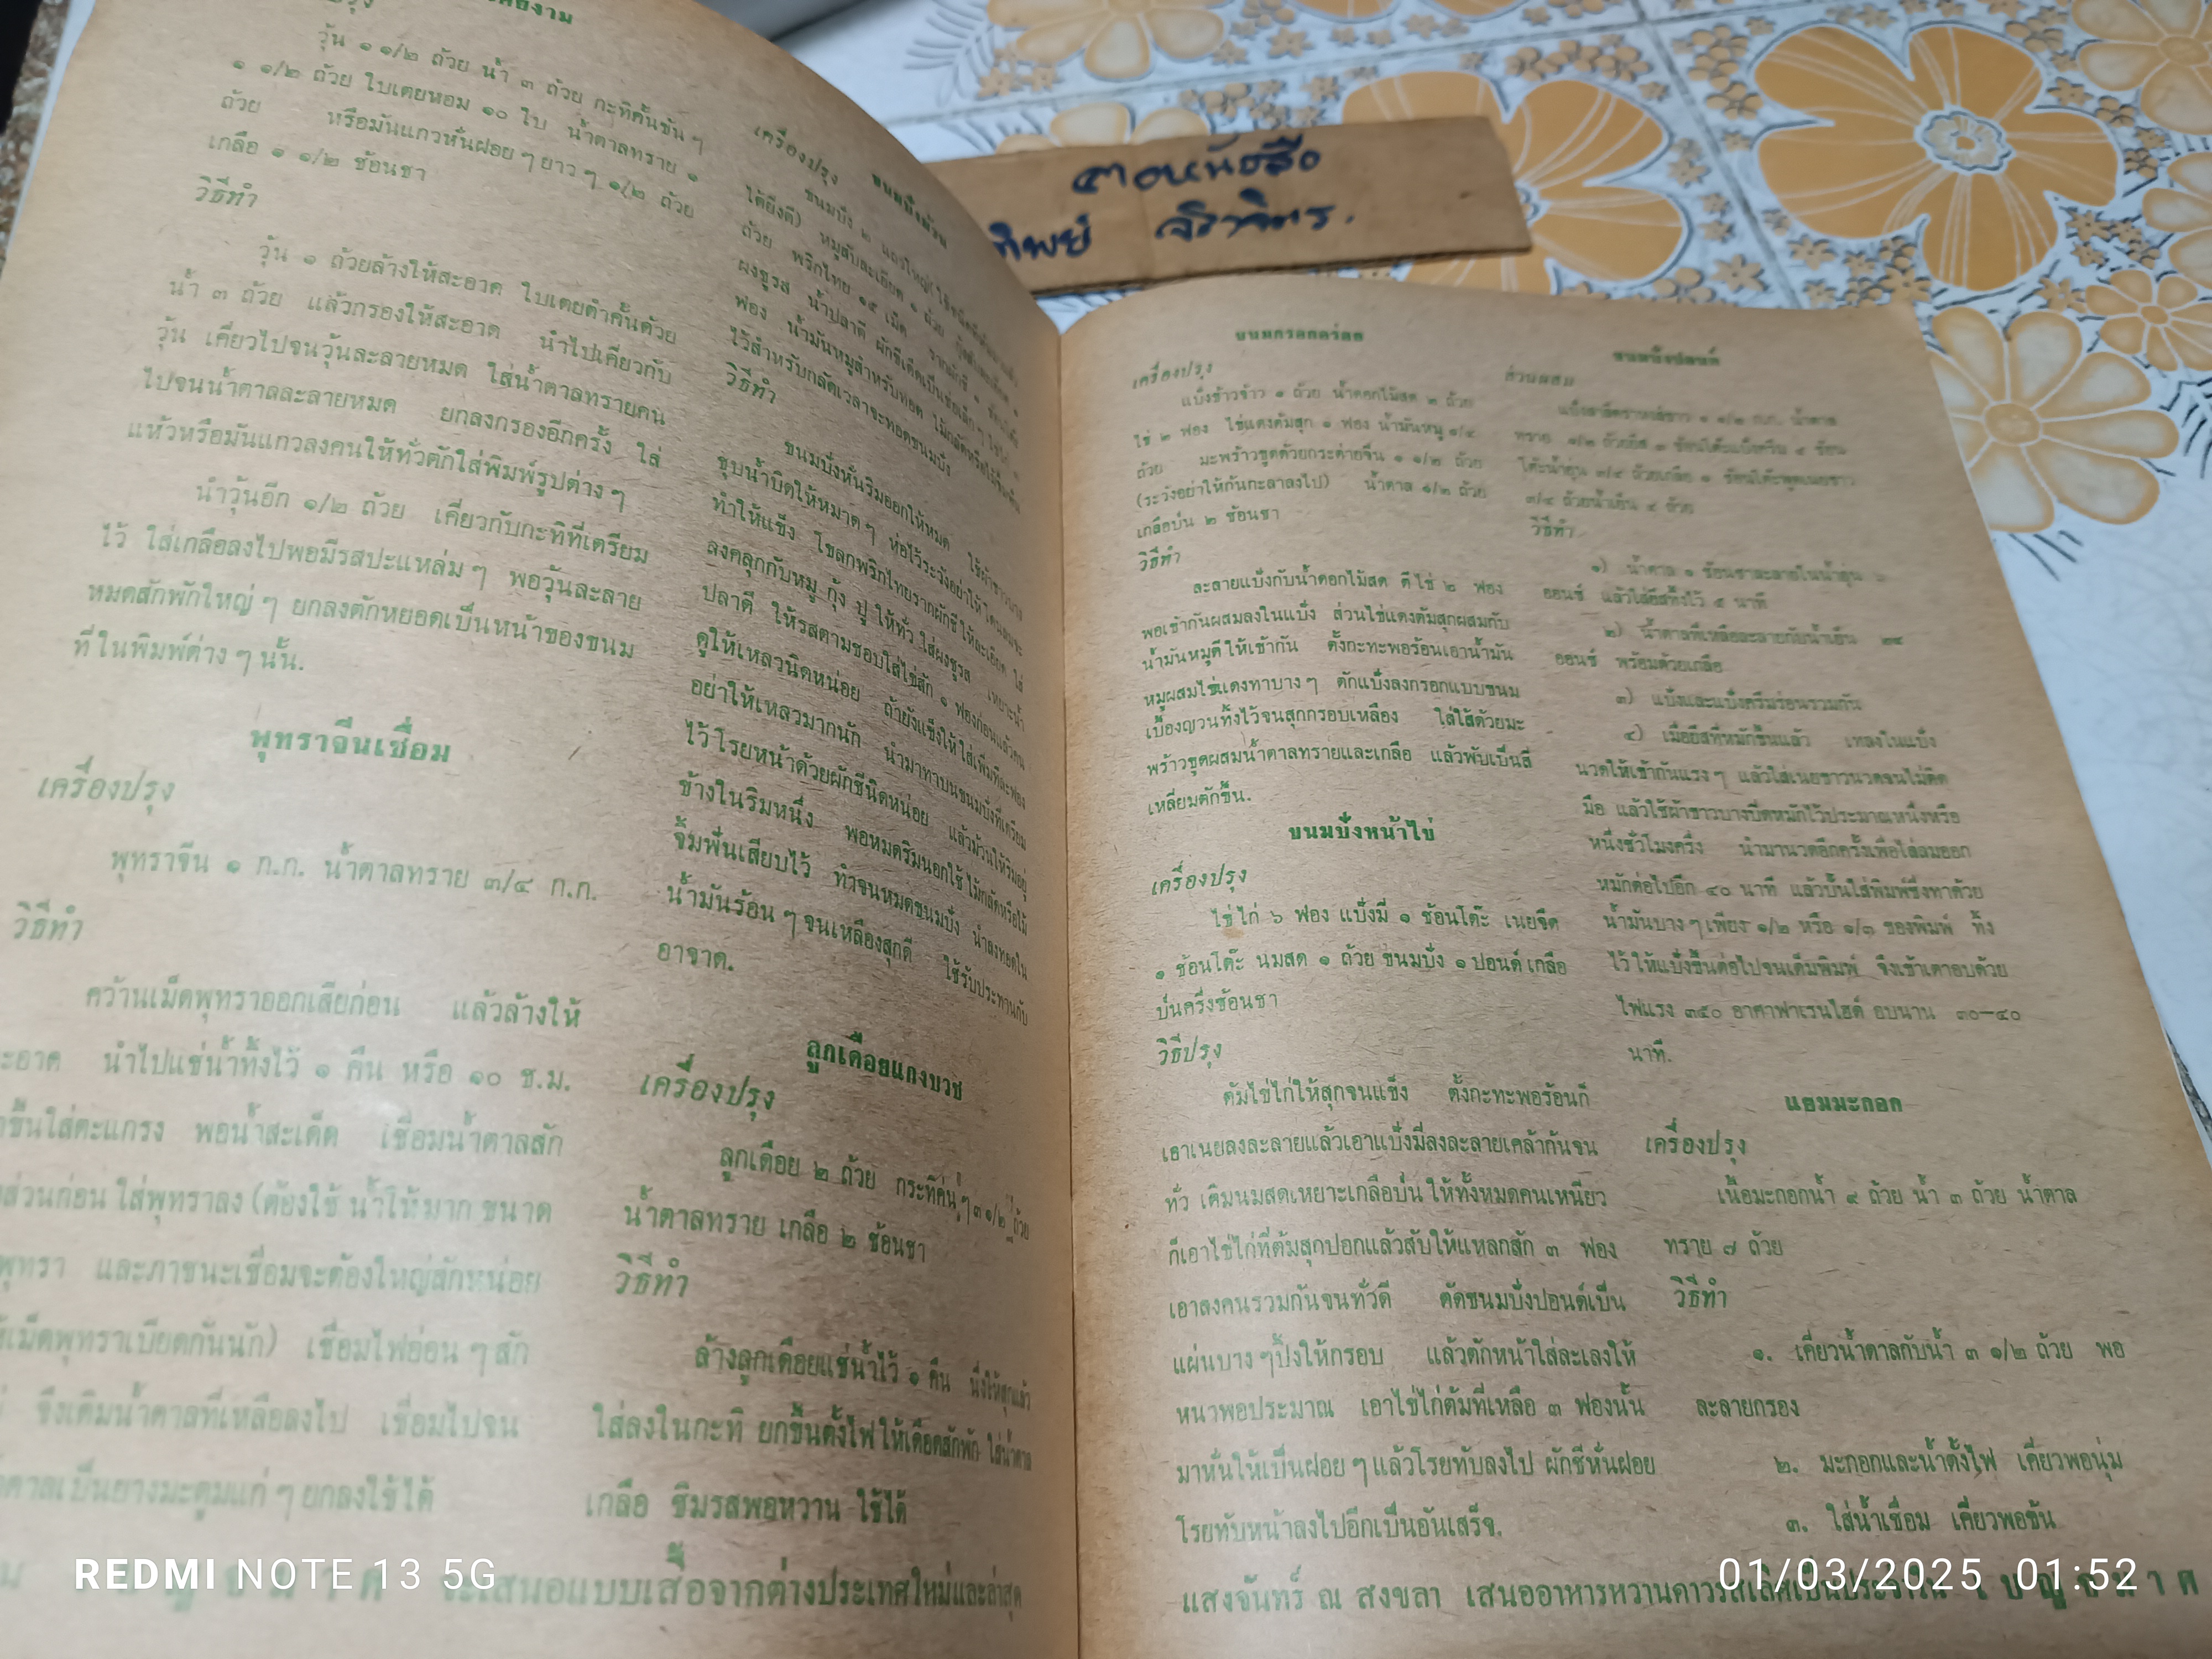 วุ้น ๑ ๑/๒ ถ้วย น้ำ ๓ ถ้วย กะทิคั้นข้น ๆ
๑ ๑/๒ ถ้วย ใบเตยหอม ๑๐ ใบ น้ำตาลทราย ๑
ถ้วย หรือมันแกวหั่นฝอย ๆ ยาว ๆ ๑/๒ ถ้วย
เกลือ ๑ ๑/๒ ช้อนชา
วิธีทำ
วุ้น ๑ ถ้วยล้างให้สะอาด ใบเตยตำคั้นด้วย
น้ำ ๓ ถ้วย แล้วกรองให้สะอาด นำไปเคี่ยวกับ
วุ้น เคี่ยวไปจนวุ้นละลายหมด ใส่น้ำตาลทรายคน
ไปจนน้ำตาลละลายหมด ยกลงกรองอีกครั้ง ใส่
แห้วหรือมันแกวลงคนให้ทั่วตักใส่พิมพ์รูปต่าง ๆ
นำวุ้นอีก ๑/๒ ถ้วย เคี่ยวกับกะทิที่เตรียม
ไว้ ใส่เกลือลงไปพอมีรสปะแหล่ม ๆ พอวุ้นละลาย
หมดสักพักใหญ่ ๆ ยกลงตักหยอดเป็นหน้าของขนม
ที่ในพิมพ์ต่าง ๆ นั้น.
พุทราจีนเชื่อม
เครื่องปรุง
พุทราจีน ๑ ก.ก. น้ำตาลทราย ๓/๔ ก.ก.
วิธีทำ
คว้านเม็ดพุทราออกเสียก่อน แล้วล้างให้
นำไปแช่น้ำทิ้งไว้ ๑ คืน หรือ ๑๐ ช.ม.
ขึ้นใส่ตะแกรง พอน้ำสะเด็ด เชื่อมน้ำตาลสัก
ส่วนก่อน ใส่พุทราลง (ต้องใช้ น้ำให้มาก ขนาด
พุทรา และภาชนะเชื่อมจะต้องใหญ่สักหน่อย
เม็ดพุทราเบียดกันนัก) เชื่อมไฟอ่อน ๆ สัก
จึงเติมน้ำตาลที่เหลือลงไป เชื่อมไปจน
ตาลเป็นยางมะตูมแก่ ๆ ยกลงใช้ได้
ขนมปังม้วน
เครื่องปรุง
ขนมปัง ๒ แถวใหญ่
ได้ยิ่งดี) หมูสับละเอียด ๑ ถ้วย
ถ้วย พริกไทย ๑๕ เม็ด รากผักชี
ผงชูรส น้ำปลาดี ผักชีเด็ดเป็นช่อเล็ก ๆ ไข่ไก่
ฟอง น้ำมันหมูสำหรับทอด ไม้กลัดหรือไม้จิ้มฟัน
ไว้สำหรับกลัดเวลาจะทอดขนมปัง
วิธีทำ
ขนมปังหั่นริมออกให้หมด ใช้ผ้าขาวบาง
ชุบน้ำบิดให้หมาด ๆ ห่อไว้ระวังอย่าให้โดนลมจะ
ทำให้แข็ง โขลกพริกไทยรากผักชีให้ละเอียด ใส่
ลงคลุกกับหมู กุ้ง ปู ให้ทั่ว ใส่ผงชูรส เหยาะน้ำ
ปลาดี ให้รสตามชอบใส่ไข่สัก ๑ ฟองก่อนแล้วคน
ดูให้เหลวนิดหน่อย ถ้ายังแข็งให้ใส่เพิ่มทีละฟอง
อย่าให้เหลวมากนัก นำมาทาบนขนมปังที่เตรียม
ไว้โรยหน้าด้วยผักชีนิดหน่อย แล้วม้วนให้ริมอยู่
ข้างในริมหนึ่ง พอหมดริมนอกใช้ไม้กลัดหรือไม้
จิ้มฟันเสียบไว้ ทำจนหมดขนมปัง นำลงทอดใน
น้ำมันร้อน ๆ จนเหลืองสุกดี ใช้รับประทานกับ
อาจาด.
ลูกเดือยแกงบวช
เครื่องปรุง
ลูกเดือย ๒ ถ้วย กระทิค่น ๆ ๓ ๑/๒ ถ้วย
น้ำตาลทราย เกลือ ๒ ช้อนชา
วิธีทำ
ล้างลูกเดือยแช่น้ำไว้ ๑ คืน นึ่งให้สุกแล้ว
ใส่ลงในกะทิ ยกขึ้นตั้งไฟให้เดือดสักพัก ใส่น้ำตาล
เกลือ ชิมรสพอหวาน ใช้ได้
จะเสนอแบบเสื้อจากต่างประเทศใหม่และล่าสุด
ขนมกรอกคร่อก
เครื่องปรุง
แป้งข้าวจ้าว ๑ ถ้วย น้ำดอกไม้สด ๒ ถ้วย
ไข่ ๒ ฟอง ไข่แดงต้มสุก ๑ ฟอง น้ำมันหมู ๑/๔
ถ้วย มะพร้าวขูดด้วยกระต่ายจีน ๑ ๑/๒ ถ้วย
(ระวังอย่าให้ก้นกะลาลงไป) น้ำตาล ๑/๒ ถ้วย
เกลือป่น ๒ ช้อนชา
วิธีทำ
ละลายแป้งกับน้ำดอกไม้สด ตีไข่ ๒ ฟอง
พอเข้ากันผสมลงในแป้ง ส่วนไข่แดงต้มสุกผสมกับ
น้ำมันหมูตีให้เข้ากัน ตั้งกะทะพอร้อนเอาน้ำมัน
หมูผสมไข่แดงทาบาง ๆ ตักแป้งลงกรอกแบบขนม
เบื้องญวนทิ้งไว้จนสุกกรอบเหลือง ใส่ไส้ด้วยมะ
พร้าวขูดผสมน้ำตาลทรายและเกลือ แล้วพับเป็นสี่
เหลี่ยมตักขึ้น.
ขนมปังหน้าไข่
เครื่องปรุง
ไข่ไก่ ๖ ฟอง แป้งมี่ ๑ ช้อนโต๊ะ เนยจืด
๑ ช้อนโต๊ะ นมสด ๑ ถ้วย ขนมปัง ๑ ปอนด์ เกลือ
ป่นครึ่งช้อนชา
วิธีปรุง
ต้มไข่ไก่ให้สุกจนแข็ง ตั้งกะทะพอร้อนก็
เอาเนยลงละลายแล้วเอาแป้งมี่ลงละลายเคล้ากันจน
ทั่ว เติมนมสดเหยาะเกลือป่น ให้ทั้งหมดคนเหนียว
ก็เอาไข่ไก่ที่ต้มสุกปอกแล้วสับให้แหลกสัก ๓ ฟอง
เอาลงคนรวมกันจนทั่วดี ตัดขนมปังปอนด์เป็น
แผ่นบาง ๆปิ้งให้กรอบ แล้วตักหน้าใส่ละเลงให้
หนาพอประมาณ เอาไข่ไก่ต้มที่เหลือ ๓ ฟองนั้น
มาหั่นให้เป็นฝอย ๆ แล้วโรยทับลงไป ผักชีหั่นฝอย
โรยทับหน้าลงไปอีกเป็นอันเสร็จ.
ขนมปังปอนด์
ส่วนผสม
น้ำตาล
ทราย ๑/๒ ถ้วยยีส ๑ ช้อนโต๊ะแป้งครีม ๔ ช้อน
โต๊ะน้ำอุ่น ๓/๔ ถ้วยเกลือ ๑ ช้อนโต๊ะพูดเนยขาว
๓/๔ ถ้วยน้ำเย็น ๔ ถ้วย
วิธีทำ
๑) น้ำตาล ๑ ช้อนชาละลายในน้ำอุ่น ๖
ออนซ์ แล้วใส่ยีสทิ้งไว้ ๕ นาที
๒) น้ำตาลที่เหลือละลายกับน้ำเย็น ๒๔
ออนซ์ พร้อมด้วยเกลือ
๓) แป้งและแป้งครีมร่อนรวมกัน
๔) เมื่อยีสที่หมักขึ้นแล้ว เทลงในแป้ง
นวดให้เข้ากันแรง ๆ แล้วใส่เนยขาวนวดจนไม่ติด
มือ แล้วใช้ผ้าขาวบางปิดหมักไว้ประมาณหนึ่งหรือ
หนึ่งชั่วโมงครึ่ง นำมานวดอีกครั้งเพื่อไล่ลมออก
หมักต่อไปอีก ๔๐ นาที แล้วปั้นใส่พิมพ์ซึ่งทาด้วย
น้ำมันบาง ๆ เพียง ๑/๒ หรือ ๑/๓ ของพิมพ์ ทิ้ง
ไว้ ให้แป้งขึ้นต่อไปจนเต็มพิมพ์ จึงเข้าเตาอบด้วย
ไฟแรง ๓๕๐ อาศาฟาเรนไฮด์ อบนาน ๓๐—๔๐
นาที.
แยมมะกอก
เครื่องปรุง
เนื้อมะกอกน้ำ ๙ ถ้วย น้ำ ๓ ถ้วย น้ำตาล
ทราย ๗ ถ้วย
วิธีทำ
๑. เคี่ยวน้ำตาลกับน้ำ ๓ ๑/๒ ถ้วย พอ
ละลายกรอง
๒. มะกอกและน้ำตั้งไฟ เคี่ยวพอนุ่ม
๓. ใส่น้ำเชื่อม เคี่ยวพอข้น
แสงจันทร์ ณ สงขลา เสนออาหารหวานคาวรสเลิศเป็นประจำใน
REDMI NOTE 13 5G
01/03/2025 01:52